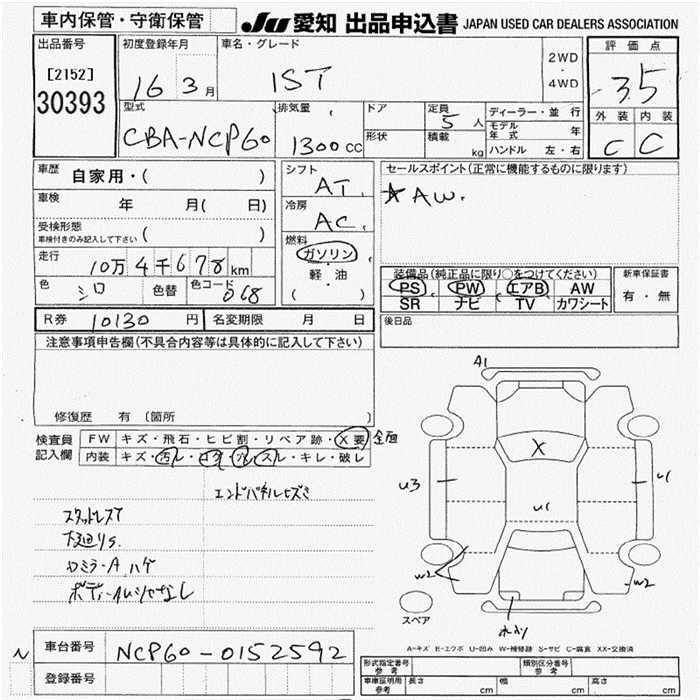 車内保管・守衛保管
JU 愛知 出品申込書 JAPAN USED CAR DEALERS ASSOCIATION
出品番号
[2152]
30393
初度登録年月
16 3月
車名・グレード
IST
2WD
・
4WD
評価点
3.5
外装 内装
C C
型式
CBA-NCP60
排気量
1300 CC
ドア
形状
定員
5人
積載
kg
ディーラー・並行
モデル年式 年
ハンドル 左・右
車歴
自家用・( )
車検
年 月( 日)
受検形態
車検付きのみ記入して下さい ( )
走行
10万4千678km
色
シロ
色替
色コード
068
シフト
AT
冷房
AC
燃料
ガソリン
軽・油
( )
セールスポイント(正常に機能するものに限ります)
AW.
装備品(純正品に限り○をつけてください)
PS PW エアB AW
SR ナビ TV カワシート
新車保証書
有・無
R券 10130円
名変期限 月 日
後日品
注意事項申告欄(不具合内容等は具体的に記入して下さい)
修復歴 有 〔箇所 〕
検査員
記入欄
FW キズ・飛石・ヒビ割・リペア跡・X要 全面
内装 キズ・汚レ・コゲ・穴・スレ・キレ・破レ
エンドパネルヒズミ
スタットレスT
下廻りS
ロミラーA ハゲ
A1
X
U3
U1
U1
W2
W2
スペア
A-キズ E-エクボ U-凹み W-補修跡 S-サビ C-腐食 XX-交換済
N
車台番号
NCP60-0152592
登録番号
型式指定番号
参考
類別区分番号
参考
車庫証明用
参考
長さ cm
幅 cm
高さ cm